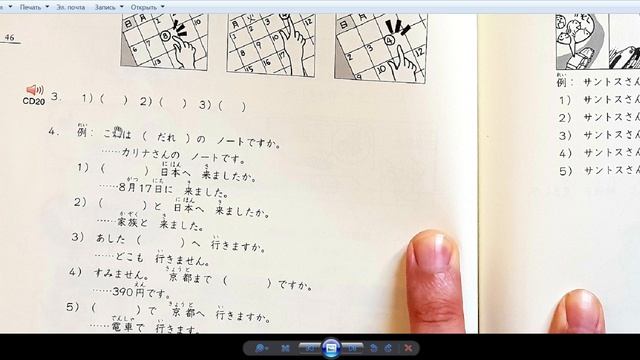 Печать
Эл. почта
Запись
Открыть
46
日 月
日 月 火
日 月
CD20
3. 1)( ) 2)( ) 3)( )
4. 例: こ は ( だれ )の ノートですか。
……カリナさんの ノートです。
1) ( ) 日本へ 来ましたか。
……8月17日に 来ました。
2) ( )と 日本へ 来ましたか。
……家族と 来ました。
3) あした ( )へ 行きますか。
……どこも 行きません。
4) すみません。 京都まで ( )ですか。
……390円です。
5) ( )で 京都へ 行きますか。
……電車で 行きます。
例: サントスさん
1) サントスさ
2) サントスさ
3) サントスさ
4) サントスさ
5) サントスさん